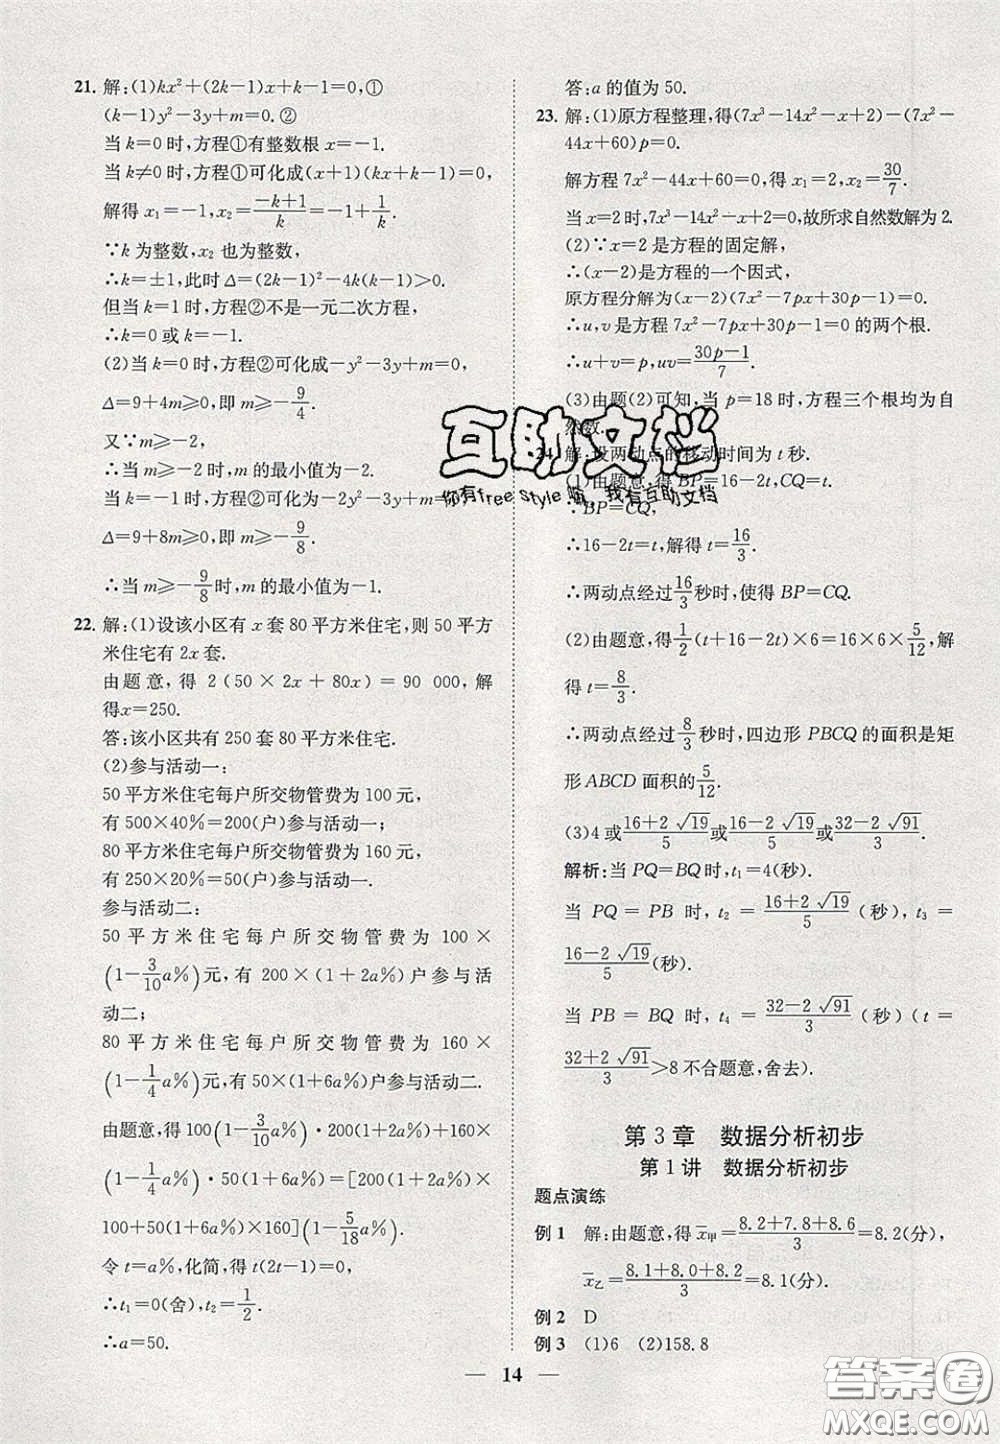 21. 解:(1)kx²+(2k-1)x+k-1=0,①
(k-1)y²-3y+m=0.②
当 k=0时,方程①有整数根 x=-1.
当 k≠0时,方程①可化成(x+1)(kx+k-1)=0,
解得 x₁=-1,x₂=\frac{-k+1}{k}=-1+\frac{1}{k}.
∵k 为整数,x₂ 也为整数,
∴k=±1,此时 Δ=(2k-1)²-4k(k-1)>0.
但当 k=1时,方程②不是一元二次方程,
∴k=0 或 k=-1.
(2)当 k=0 时,方程②可化成-y²-3y+m=0,
Δ=9+4m≥0,即 m≥-\frac{9}{4}.
又∵m≥-2,
∴当 m≥-2时,m 的最小值为-2.
当 k=-1时,方程②可化为-2y²-3y+m=0,
Δ=9+8m≥0,即 m≥-\frac{9}{8}.
∴当 m≥-\frac{9}{8}时,m 的最小值为-1.
22. 解:(1)设该小区有 x 套 80 平方米住宅,则 50 平方
米住宅有 2x 套.
由题意,得 2(50×2x+80x)=90 000,解
得x=250.
答:该小区共有 250 套 80 平方米住宅.
(2)参与活动一:
50 平方米住宅每户所交物管费为 100 元,
有 500×40%=200(户)参与活动一;
80 平方米住宅每户所交物管费为 160 元,
有 250×20%=50(户)参与活动一.
参与活动二:
50 平方米住宅每户所交物管费为 100×
(1-\frac{3}{10}a%)元,有 200×(1+2a%)户参与活
动二;
80 平方米住宅每户所交物管费为 160×
(1-\frac{1}{4}a%)元,有 50×(1+6a%)户参与活动二.
由题意,得100(1-\frac{3}{10}a%)·200(1+2a%)+160×
(1-\frac{1}{4}a%)·50(1+6a%)=[200(1+2a%)×
100+50(1+6a%)×160](1-\frac{5}{18}a%).
令 t=a%,化简,得 t(2t-1)=0.
∴t₁=0(舍),t₂=\frac{1}{2}.
∴a=50.
答:a 的值为 50.
23. 解:(1)原方程整理,得(7x³-14x²-x+2)-(7x²-
44x+60)p=0.
解方程 7x²-44x+60=0,得 x₁=2,x₂=\frac{30}{7}.
当 x=2 时,7x³-14x²-x+2=0,故所求自然数解为 2.
(2)∵x=2 是方程的固定解,
∴(x-2)是方程的一个因式,
原方程分解为(x-2)(7x²-7px+30p-1)=0.
∴u,v是方程 7x²-7px+30p-1=0 的两个根.
∴u+v=p,uv=\frac{30p-1}{7}.
(3)由题(2)可知,当 p=18 时,方程三个根均为自
然数.
24. 解:设两动点的移动时间为 t 秒.
(1)由题意,得 BP=16-2t,CQ=t.
∵BP=CQ,
∴16-2t=t,解得 t=\frac{16}{3}.
∴两动点经过\frac{16}{3}秒时,使得 BP=CQ.
(2)由题意,得\frac{1}{2}(t+16-2t)×6=16×6×\frac{5}{12},解
得 t=\frac{8}{3}.
∴两动点经过\frac{8}{3}秒时,四边形 PBCQ 的面积是矩
形 ABCD 面积的\frac{5}{12}.
(3)4 或\frac{16+2√19}{5}或\frac{16-2√19}{5}或\frac{32-2√91}{3}.
解析:当 PQ=BQ 时,t₁=4(秒).
当 PQ=PB 时,t₂=\frac{16+2√19}{5}(秒),t₃=
\frac{16-2√19}{5}(秒).
当 PB=BQ 时,t₄=\frac{32-2√91}{3}(秒)(t=
\frac{32+2√91}{3}>8 不合题意,舍去).
第 3 章 数据分析初步
第 1 讲 数据分析初步
题点演练
例 1 解:由题意,得 x̄甲=\frac{8.2+7.8+8.6}{3}=8.2(分),
x̄乙=\frac{8.1+8.0+8.2}{3}=8.1(分).
例 2 D
例 3 (1)6 (2)158.8
14
互助文档
你有free style 嘛，我有互助文档
答案圈
MXQE.COM